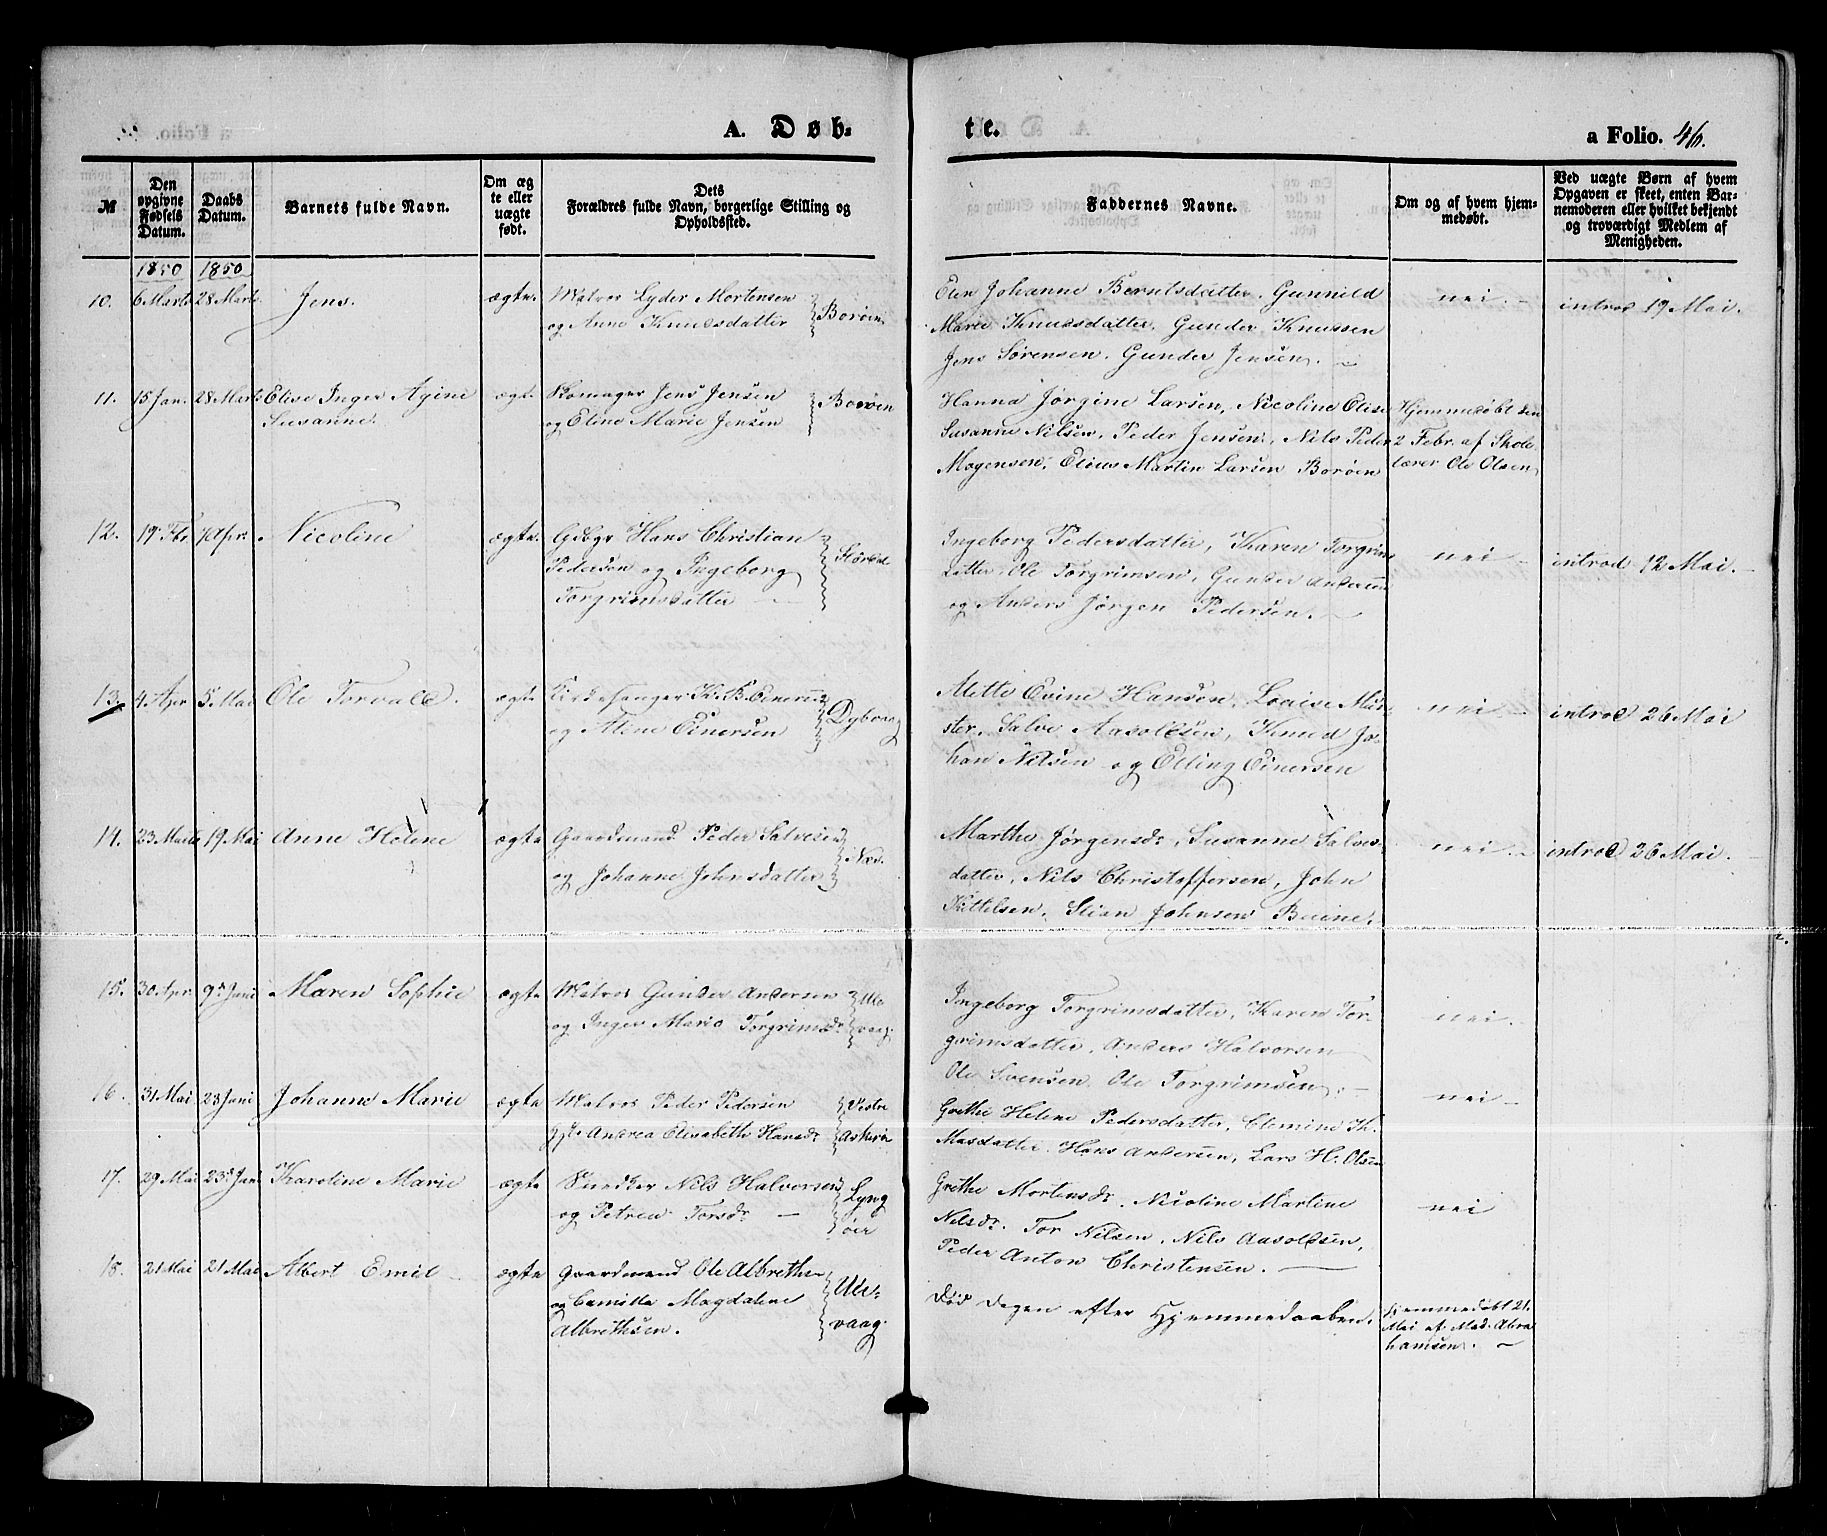 A. Døb-
te.
a Folio. 46.
№
Den opgivne Fødsels Datum.
Daabs Datum.
Barnets fulde Navn.
Om ægte eller uægte født.
Dets
Forældres fulde Navn, borgerlige Stilling og
Opholdssted.
Faddernes Navne.
Om og af hvem hjem-
medøbt.
Ved uægte Børn af hvem
Opgaven er skeet, enten Bar-
nemoderen eller hvilket bekjendt
og troværdigt Medlem af
Menigheden.
1850 1850
10. 6 Marts 28 Marts Jens. ægte. Matros Lyder Mortensen
og Anne Knudsdatter Borøen
Elen Johanne Berntsdatter, Gunnild
Marie Knudsdatter, Gunder Knussen
Jens Sørensen, Gunder Jensen.
nei. introd 19 Mai.
11. 15 Jan. 28 Marts Elise Inger Agine
Susanne. ægte Skomager Jens Jensen
og Eline Marie Jensen Borøen
Hanna Jørgine Larsen, Nicoline Elise
Susanne Nilsen, Peder Jensen, Nils Peder
Mogensen, Elius Martin Larsen Borøen
Hjemmedøbt den
2 Febr. af Skole
lærer Ole Olsen
12. 19 Fbr. 1 Apr. Nicoline ægte. Gdbgr Hans Christian
Pedersen og Ingeborg
Torgrimsdatter
Ingeborg Pedersdatter, Karen Torgrims
datter, Ole Torgrimsen, Gunder Andersen
og Anders Jørgen Pedersen.
nei introd 12 Mai.
13. 4 Apr 5 Mai Ole Torvald. ægte Kirkesanger K. B. Einersen
og Alene Einersen Dyvaag
Mette Evine Hansen, Louise Mün-
ster, Salve Aasoldsen, Knud Jo-
han Nilsen og Elling Einersen
nei introd 26 Mai
14. 23 Marts 19 Mai Anne Helene ægte Gaardmand Peder Salvesen
og Johanne Johnsdatter Næs
Marthe Jørgensdr, Susanne Salves-
datter, Nils Christoffersen, John
Kittelsen, Stian Johnsen
nei. introd 26 Mai.
15. 30 Apr. 9de Juni Maren Sophie ægte Matros Gunder Andersen
og Inger Marie Torgrimsdr Ule
vaag.
Ingeborg Torgrimsdatter, Karen Tor-
grimsdatter, Anders Halvorsen
Ole Svensen, Ole Torgrimsen.
nei.
16. 31 Mai 23 Juni Johanne Marie ægte Matros Peder Pedersen
Andrea Elisabeth Hansdr Vestre
Askerøe
Grethe Helene Pedersdatter, Clemine Th.
Masdatter, Hans Andersen, Lars H. Olsen
nei
17. 29 Mai 23 Jun Karoline Marie ægte Snedker Nils Halvorsen
og Petren Torsdr Lyng
øer
Grethe Mortensdr, Nicoline Martine
Nilsdr, Tor Nilsen, Nils Aasoldsen,
Peder Anton Christensen.
nei
18. 21 Mai 21 Mai Albert Emil ægte Gaardmand Ole Albrethsen
og Camilla Magdalene
Albrethsen. Ule-
vaag.
Død dagen efter Hjemmedaaben.
Hjemmedøbt 21.
Mai af Mad. Abra
hamsen.